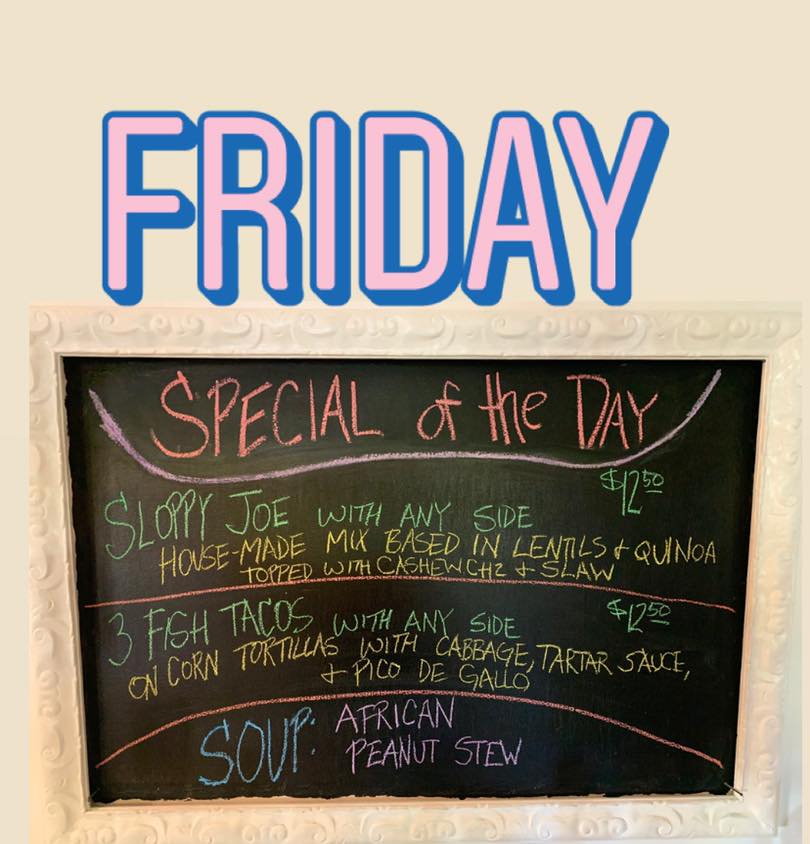 FRIDAY
SPECIAL of the DAY
$12.50
SLOPPY JOE WITH ANY SIDE
HOUSE-MADE MIX BASED IN LENTILS & QUINOA
TOPPED WITH CASHEW CHZ & SLAW
3 FISH TACOS WITH ANY SIDE $12.50
ON CORN TORTILLAS WITH CABBAGE, TARTAR SAUCE,
& PICO DE GALLO
SOUP: AFRICAN
PEANUT STEW